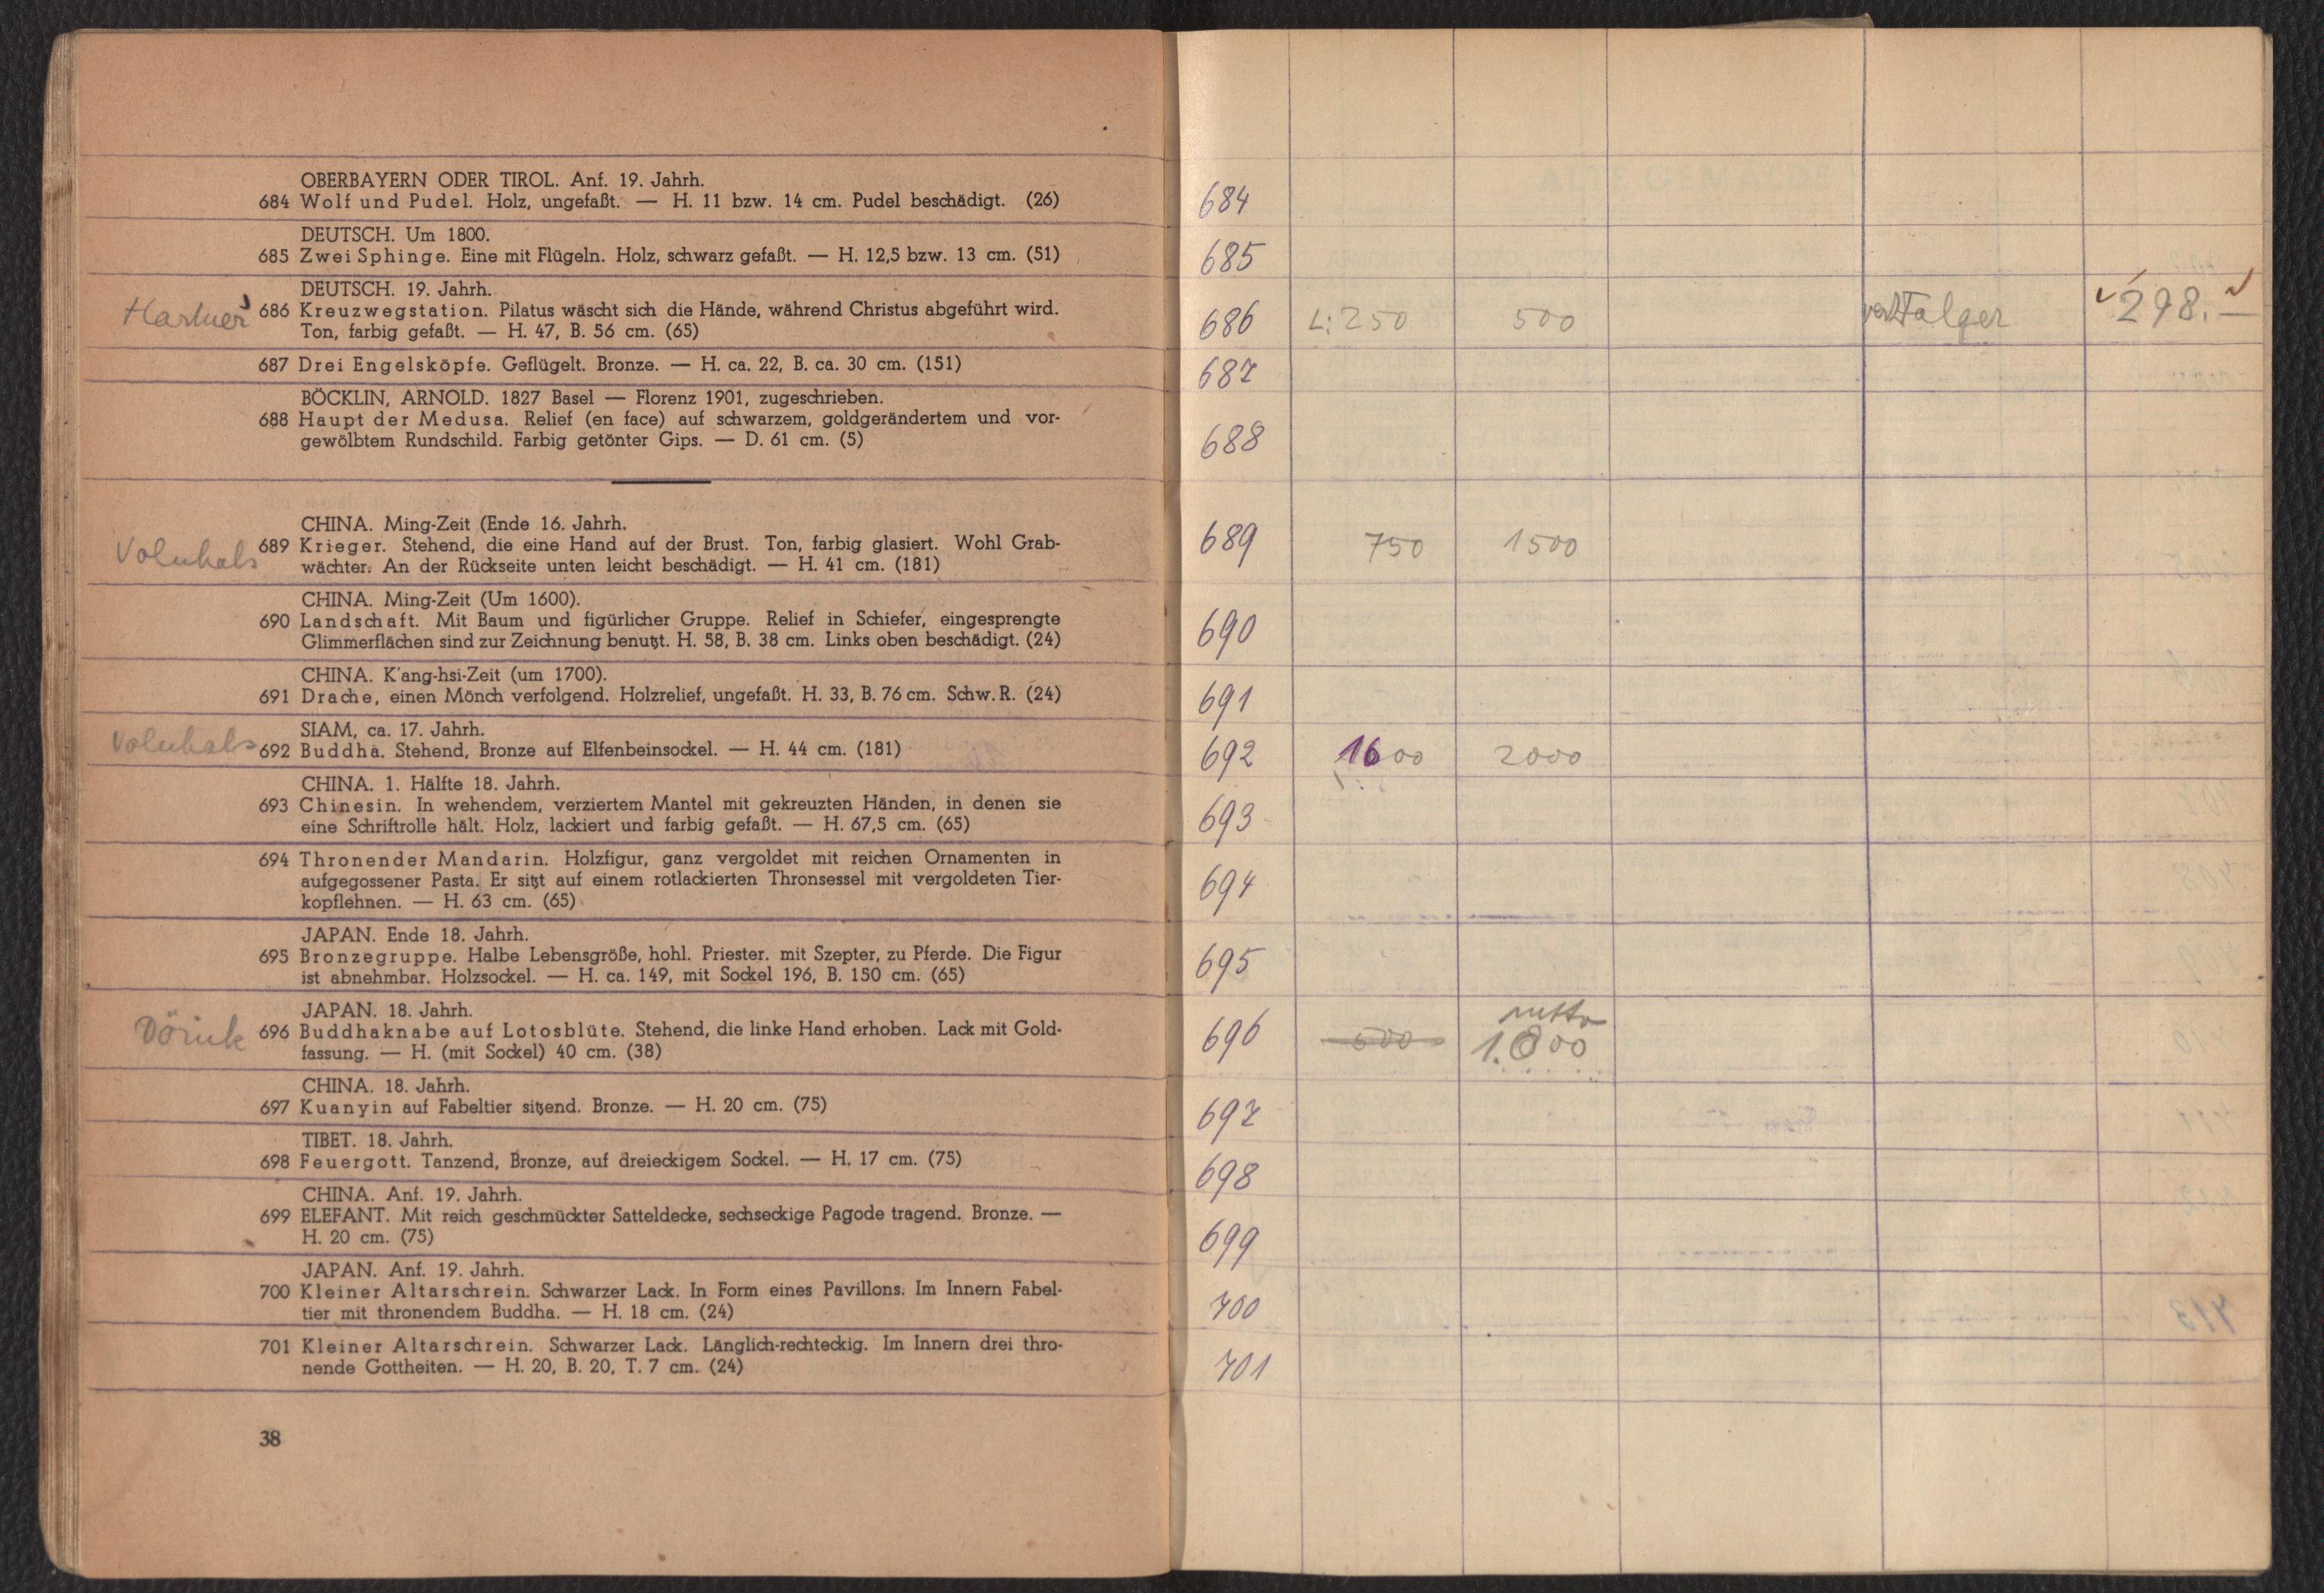 OBERBAYERN ODER TIROL. Anf. 19. Jahrh.
684 Wolf und Pudel. Holz, ungefaßt. — H. 11 bzw. 14 cm. Pudel beschädigt. (26)
DEUTSCH. Um 1800.
685 Zwei Sphinge. Eine mit Flügeln. Holz, schwarz gefaßt. — H. 12,5 bzw. 13 cm. (51)
DEUTSCH. 19. Jahrh.
686 Kreuzwegstation. Pilatus wäscht sich die Hände, während Christus abgeführt wird.
Ton, farbig gefaßt. — H. 47, B. 56 cm. (65)
687 Drei Engelsköpfe. Geflügelt. Bronze. — H. ca. 22, B. ca. 30 cm. (151)
BÖCKLIN, ARNOLD. 1827 Basel — Florenz 1901, zugeschrieben.
688 Haupt der Medusa. Relief (en face) auf schwarzem, goldgerändertem und vor-
gewölbtem Rundschild. Farbig getönter Gips. — D. 61 cm. (5)
CHINA. Ming-Zeit (Ende 16. Jahrh.
Volnhals
689 Krieger. Stehend, die eine Hand auf der Brust. Ton, farbig glasiert. Wohl Grab-
wächter. An der Rückseite unten leicht beschädigt. — H. 41 cm. (181)
CHINA. Ming-Zeit (Um 1600).
690 Landschaft. Mit Baum und figürlicher Gruppe. Relief in Schiefer, eingesprengte
Glimmerflächen sind zur Zeichnung benutzt. H. 58, B. 38 cm. Links oben beschädigt. (24)
CHINA. K'ang-hsi-Zeit (um 1700).
691 Drache, einen Mönch verfolgend. Holzrelief, ungefaßt. H. 33, B. 76 cm. Schw. R. (24)
SIAM, ca. 17. Jahrh.
Volnhals
692 Buddha. Stehend, Bronze auf Elfenbeinsockel. — H. 44 cm. (181)
CHINA. 1. Hälfte 18. Jahrh.
693 Chinesin. In wehendem, verziertem Mantel mit gekreuzten Händen, in denen sie
eine Schriftrolle hält. Holz, lackiert und farbig gefaßt. — H. 67,5 cm. (65)
694 Thronender Mandarin. Holzfigur, ganz vergoldet mit reichen Ornamenten in
aufgegossener Pasta. Er sitzt auf einem rotlackierten Thronsessel mit vergoldeten Tier-
kopflehnen. — H. 63 cm. (65)
JAPAN. Ende 18. Jahrh.
695 Bronzegruppe. Halbe Lebensgröße, hohl. Priester. mit Szepter, zu Pferde. Die Figur
ist abnehmbar. Holzsockel. — H. ca. 149, mit Sockel 196, B. 150 cm. (65)
JAPAN. 18. Jahrh.
696 Buddhaknabe auf Lotosblüte. Stehend, die linke Hand erhoben. Lack mit Gold-
fassung. — H. (mit Sockel) 40 cm. (38)
CHINA. 18. Jahrh.
697 Kuanyin auf Fabeltier sitzend. Bronze. — H. 20 cm. (75)
TIBET. 18. Jahrh.
698 Feuergott. Tanzend, Bronze, auf dreieckigem Sockel. — H. 17 cm. (75)
CHINA. Anf. 19. Jahrh.
699 ELEFANT. Mit reich geschmückter Satteldecke, sechseckige Pagode tragend. Bronze. —
H. 20 cm. (75)
JAPAN. Anf. 19. Jahrh.
700 Kleiner Altarschrein. Schwarzer Lack. In Form eines Pavillons. Im Innern Fabel-
tier mit thronendem Buddha. — H. 18 cm. (24)
701 Kleiner Altarschrein. Schwarzer Lack. Länglich-rechteckig. Im Innern drei thro-
nende Gottheiten. — H. 20, B. 20, T. 7 cm. (24)
38
684
685
686 L: 250 500 298.—
687
688
689 750 1500
690
691
692 1600 2000
693
694
695
netto
696 500 1.800
697
698
699
700
701